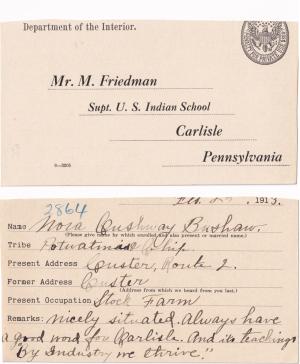 Department of the Interior.
Mr. M. Friedman
Supt. U. S. Indian School
Carlisle
Pennsylvania
2864
1913.
Name Nora Cushway Bushaw.
(Please give name by which enrolled and also present or married name.)
Tribe Potwatmie Chip
Present Address Custer, Route 2.
Former Address Custer
(Address from which we heard from you last.)
Present Occupation Stock Farm
Remarks: nicely situated. Always have
a good word for Carlisle. And its teachings
"By Industry we thrive."